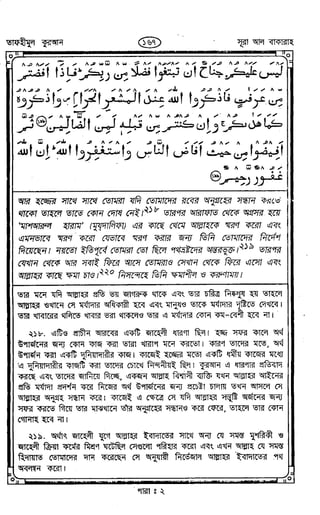 তাফহীমুল কুরআন
১৬৭
সূরা আল বাকারাহ
لَيْسَ عَلَيْكُمْ جُنَاحٌ أَنْ تَبْتَغُوا فَضْلًا مِنْ رَبِّكُمْ فَإِذَا أَفَضْتُمْ
مِنْ عَرَفَاتٍ فَاذْكُرُوا اللَّهَ عِنْدَ الْمَشْعَرِ الْحَرَامِ وَاذْكُرُوهُ
كَمَا هَدَاكُمْ وَإِنْ كُنْتُمْ مِنْ قَبْلِهِ لَمِنَ الضَّالِّينَ ثُمَّ
أَفِيضُوا مِنْ حَيْثُ أَفَاضَ النَّاسُ وَاسْتَغْفِرُوا اللَّهَ إِنَّ اللَّهَ
غَفُورٌ رَحِيمٌ
আর হজ্জের সাথে সাথে তোমরা যদি তোমাদের রবের অনুগ্রহের সন্ধান করতে
থাকো তাহলে তাতে কোন দোষ নেই।২১৮ তারপর আরাফাত থেকে অগ্রসর হয়ে
'মাশআরুল হারাম' (মুয্দালিফা) এর কাছে থেমে আল্লাহকে স্মরণ করো এবং
এমনভাবে স্মরণ করো যেভাবে স্মরণ করার জন্য তিনি তোমাদের নির্দেশ
দিয়েছেন। নয়তো ইতিপূর্বে তোমরা তো ছিলে পথভ্রষ্টদের অন্তরভুক্ত।২১৯ তারপর
যেখান থেকে আর সবাই ফিরে আসে তোমরাও সেখান থেকে ফিরে এসো এবং
আল্লাহর কাছে ক্ষমা চাও।২২০ নিসন্দেহে তিনি ক্ষমাশীল ও করুণাময়।
তার মনে যদি আল্লাহর প্রতি ভয় জাগরুক থাকে এবং তার চরিত্র নিষ্কলুষ হয় তাহলে
আল্লাহর ওখানে সে মর্যাদার অধিকারী হবে এবং মানুষও তাকে মর্যাদার দৃষ্টিতে দেখবে।
তার খাবারের থলিতে খাবার ভরা থাকলেও তার এ মর্যাদার কোন কম-বেশী হবে না।
২১৮. এটিও প্রাচীন আরবের একটি জাহেলী ধারণা ছিল। হজ্জ সফর কালে অর্থ
উপার্জনের জন্য কোন কাজ করা তারা খারাপ মনে করতো। কারণ তাদের মতে, অর্থ
উপার্জন করা একটি দুনিয়াদারীর কাজ। কাজেই হজ্জের মতো একটি ধর্মীয় কাজের মধ্যে
এ দুনিয়াদারীর কাজটি করা তাদের চোখে নিন্দনীয়ই ছিল। কুরআন এ ধারণার প্রতিবাদ
করছে এবং তাদের জানিয়ে দিচ্ছে, একজন আল্লাহ বিশ্বাসী ব্যক্তি যখন আল্লাহর আইনের
প্রতি মর্যাদা প্রদর্শন করে নিজের অর্থ উপার্জনের জন্য প্রচেষ্টা চালায় তখন আসলে সে
আল্লাহর অনুগ্রহ সন্ধান করে। কাজেই এ ক্ষেত্রে সে যদি আল্লাহর সন্তুষ্টি অর্জনের জন্য
সফর করতে গিয়ে তার মাঝখানে তাঁর অনুগ্রহের সন্ধানও করে ফেরে, তাহলে তার কোন
গোনাহ হবে না।
২১৯. অর্থাৎ জাহেলী যুগে আল্লাহর ইবাদাতের সাথে অন্য যে সমস্ত মুশরিকী ও
জাহেলী ক্রিয়া কর্মের মিশ্রণ ঘটেছিল সেগুলো পরিহার করো এবং এখন আল্লাহ যে সমস্ত
হিদায়াত তোমাদের দান করেছেন সে অনুযায়ী নির্ভেজাল আল্লাহর ইবাদাতের পথ
অবলম্বন করো।
পারা ঃ ২